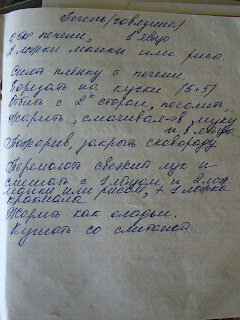 Печень (говядина)
0,5кг печени, 1 яйцо
2 ложки манки или риса
Снять плёнку с печени.
Порезать на куски (5×5)
Отбить с 2х сторон, посолить,
Жарить, смачивая в муку
и в яйцо
Пожарив, закрыть сковороду
Перемолоть свежий лук и
смешать с 1 яйцом и 2 лож.
манки или рисом, + 1 ложка
крахмала
Жарить как оладьи.
Кушать со сметаной